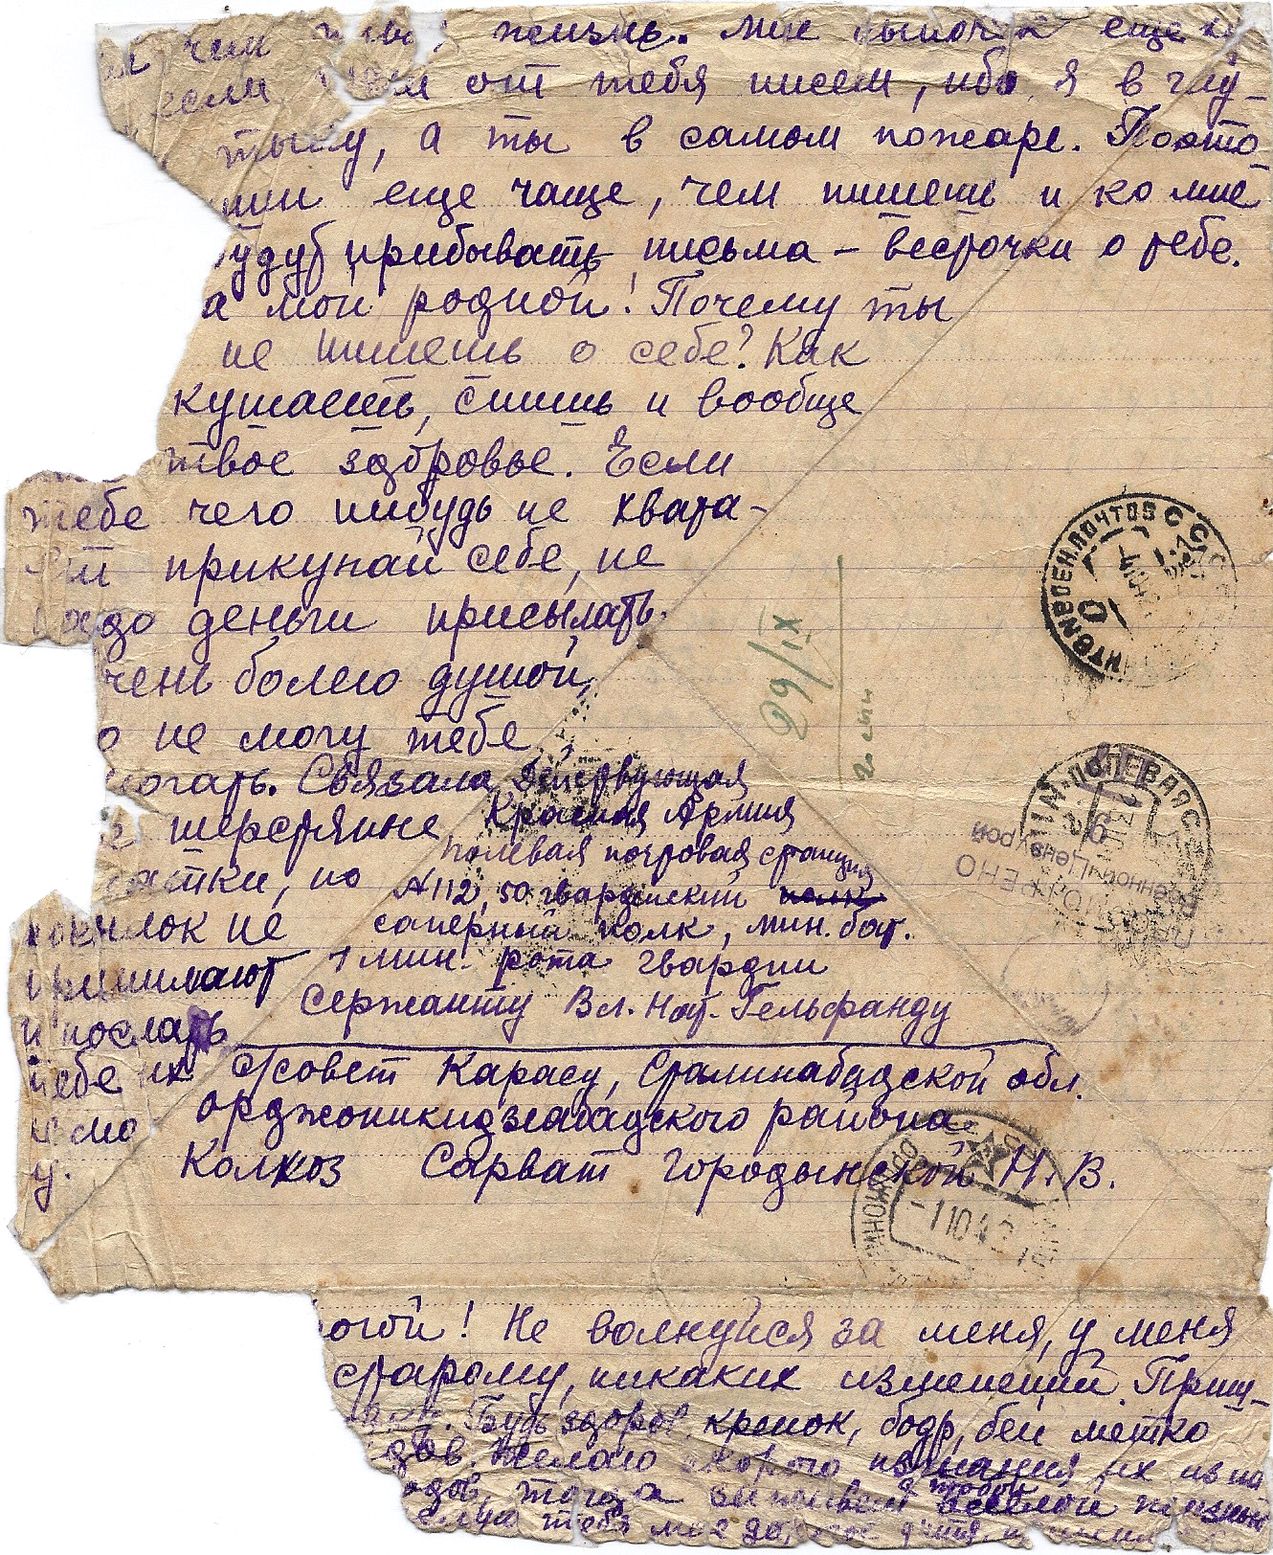 чем жизнь. Мне сыночек еще
если от тебя писем, ибо я в глу-
тылу, а ты в самом пожаре. Поэто-
пиши еще чаще, чем пишешь и ко мне
будут прибывать письма – весточки о тебе.
а мой родной! Почему ты
не пишешь о себе? Как
кушаешь, спишь и вообще
твое здоровье. Если
тебе чего нибудь не хвата-
ет прикупай себе, не
надо деньги присылать.
чень болею душой,
о не могу тебе
могать. Связала
шерстяные
чатки, но
посылок не
принимают
и послать
тебе их
не мо
у.
Действующая
Красная Армия
Полевая почтовая станция
№112, 50 гвардейский полк
саперный полк, мин. бат.
1 мин. рота гвардии
Сержанту Вл. Нат. Гельфанду
Псовет Карасу, Сталинабадской обл.
орджоникидзеабадского района
Колхоз Сарват Городынской Н. В.
29/IX
СССР
ПОЛЕВАЯ
ПРОСМОТРЕНО
Военной Цензурой
-1 10 4
рогой! Не волнуйся за меня, у меня
старому, никаких изменений. Пиши
Будь здоров, крепок, бодр, бей метко
дов. Желаю скорого изгнания их из на
родов, тогда заживем с тобой веселой жизнью
тебя мое дорогое дитя,